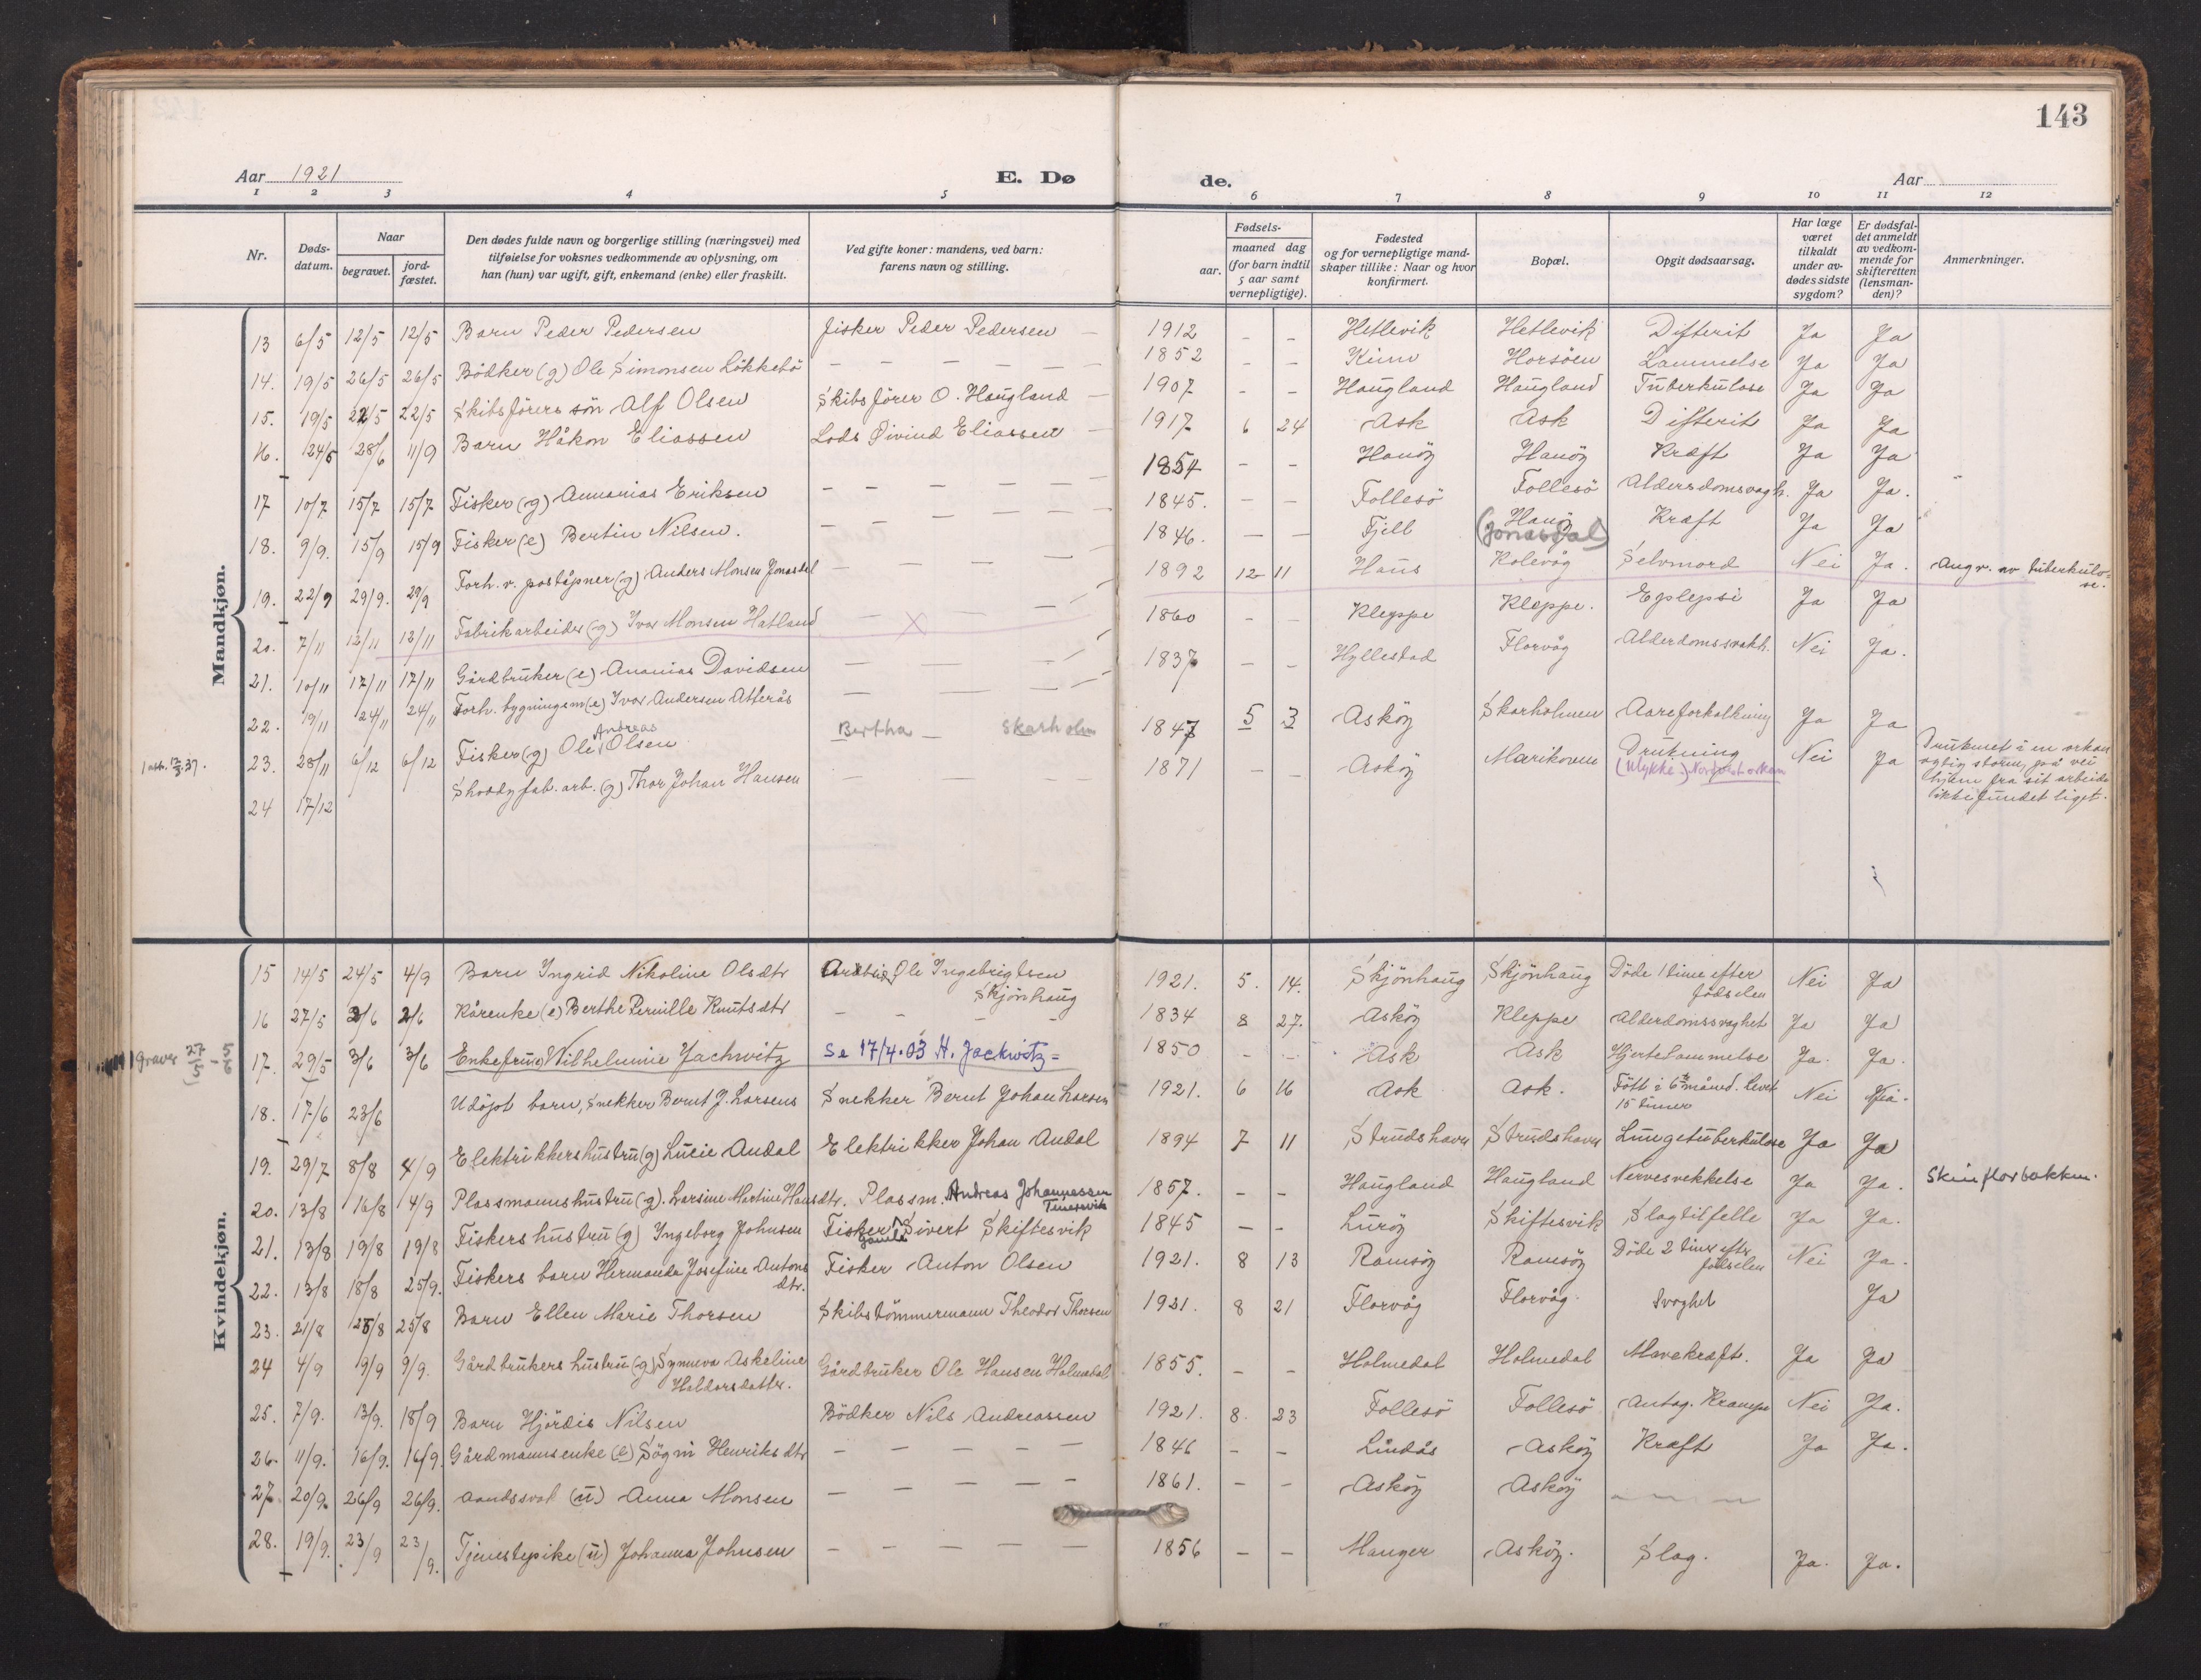 143
Aar 1921
E. Dø
de.
Aar
1 2 3 4 5 6 7 8 9 10 11 12
Nr.
Døds-
datum.
Naar
begravet.
jord-
fæstet.
Den dødes fulde navn og borgerlige stilling (næringsvei) med
tilføielse for voksnes vedkommende av oplysning, om
han (hun) var ugift, gift, enkemand (enke) eller fraskilt.
Ved gifte koner: mandens, ved barn:
farens navn og stilling.
aar.
Fødsels-
maaned dag
(for barn indtil
5 aar samt
vernepligtige).
Fødested
og for vernepligtige mand-
skaper tillike: Naar og hvor
konfirmert.
Bopæl.
Opgit dødsaarsag.
Har læge
været
tilkaldt
under av-
dødes sidste
sygdom?
Er dødsfal-
det anmeldt
av vedkom-
mende for
skifteretten
(lensman-
den)?
Anmerkninger.
Mandkjøn.
13 6/5 12/5 12/5 Barn Peder Pedersen fisker Peder Pedersen — 1912 – – Hetlevik Hetlevik Difterit Ja Ja
14. 19/5 26/5 26/5 Bödker (g) Ole Simonsen Lökkebö — — — — 1852 – – Kinn Horsöen Lammelse Ja Ja
15. 19/5 22/5 22/5 Skibsförers sön Alf Olsen Skibsförer O. Haugland — 1907 – – Haugland Haugland Tuberkulose Ja Ja
16. 24/6 28/6 11/9 Barn Håkon Eliassen Lods Øivind Eliassen — 1917 6 24 Ask Ask Difterit Ja Ja
17 10/7 15/7 15/7 Fisker (g) Annanias Eriksen — — — — 1854 – – Hanöy Hanöy Kræft Ja Ja
18. 9/9. 15/9 15/9 Fisker (e) Bertin Nilsen. — — — — 1845. – – Follesö Follesö Aldersdomsvagh. Ja Ja.
19. 22/9 29/9. 29/9 Forh. v. poståpner (g) Anders Monsen Jonasdal — — — — 1846. – – Fjell Hanöy (Jonasdal) Kræft Ja Ja
20. 7/11 12/11 12/11 Fabrikarbeider (g) Ivar Monsen Hatland — X — — 1892 12 11 Haus Kolevåg Selvmord Nei Ja. Angr. av tuberkulo-
se.
21. 10/11 17/11 17/11 Gårdbruker (e) Ananias Davidsen — — — 1860 – – Kleppe Kleppe. Eplepsi Ja Ja
22. 19/11 24/11 24/11 Forh. bygningsm (e) Ivar Andersen Atterås — — — 1837 – – Hyllestad Florvåg Alderdomssvakh. Nei Ja.
Andreas
1 att. 12/3.37. 23. 28/11 6/12 6/12 Fisker (g) Ole Olsen Bertha — Skarholm 1847 5 3 Asköy Skarholmen Aareforkalkning Ja Ja
24 17/12 Shoddyfab. arb. (g) Thor Johan Hansen — — — 1871 – – Asköy Marikoven Drukning Nei Ja Druknet i en orkan
(Ulykke) Nordvest orkan
agtig storm, på vei
hjem fra sit arbeide
ikke fundet liget.
Kvindekjøn.
15 14/5 24/5 4/9 Barn Ingrid Nikoline Olsdtr Arbeid. Ole Ingebrigtsen
Skjönhaug 1921. 5. 14. Skjönhaug Skjönhaug Döde 1 time efter
födselen Nei Ja
16 27/5 2/6 2/6 Kårenke (e) Berthe Pernille Knutsdtr – – – – 1834 8 27. Asköy Kleppe Alderdomssvaghet Ja Ja
1 graver 17. 29/5 3/6 3/6 Enkefru Wilhelmine Jachwitz Se 17/4.03 H. Jackwitz = 1850 – – Ask Ask Hjertelammelse Ja. Ja.
18. 17/6 23/6 Udöpt barn, Snekker Bernt J. Larsens Snekker Bernt Johan Larsen 1921. 6 16 Ask Ask. Fött i 6te måned. Levet
15 timer Nei
19. 29/7 8/8 4/9 Elektrikkershustru (g) Lucie Audal Elektrikker Johan Audal 1894 7 11 Strudshavn Strudshavn Lungetuberkulose Ja Ja
20. 13/8 16/8 4/9 Plassmannshustru (g). Larsine Martine Hansdtr. Plassm. Andreas Johannessen
1857. – – Haugland Haugland Nervesvekkelse Ja Ja. Skinflorbakken.
21. 13/8 19/8 19/8 Fiskers hustru (g) Ingeborg Johnsen Fisker Sivert Skiftesvik
Gamle
1845 – – Luröy Skiftesvik Slagtilfelle Ja Ja.
22. 13/8 18/8 25/9. Fiskers barn Hermanda Josefine Antons
dtr. Fisker Anton Olsen 1921. 8 13 Ramsöy Ramsöy Döde 2 timer efter
födselen Nei Ja.
23. 21/8 25/8 25/8 Barn Ellen Marie Thorsen Skibstömmermann Theodor Thorsen 1921. 8 21 Florvåg Florvåg. Svaghet Ja
24 4/9 9/9 9/9. Gårdbrukers hustru (g) Synneva Askeline
Haldorsdatter. Gårdbruker Ole Hansen Holmedal 1855. – – Holmedal Holmedal Mavekræft. Ja Ja
25. 7/9. 13/9. 18/9 Barn Hjördis Nilsen Bödker Nils Andreassen 1921. 8. 23 Follesö Follesö Antag. Krampe Nei Ja.
26. 11/9. 16/9. 16/9. Gårdmannsenke (e) Sögni Henriksdtr — — — — — 1846 – – Lindås Asköy Kræft Ja Ja.
27. 20/9. 26/9 26/9. Aandssvak (u) Anna Monsen — — — — 1861. – – Asköy Asköy
28. 19/9. 23/9 23/9. Tjenestepike (u) Johanna Johnsen — — — — — 1856 – – Manger Asköy. Slag. Ja. Ja.